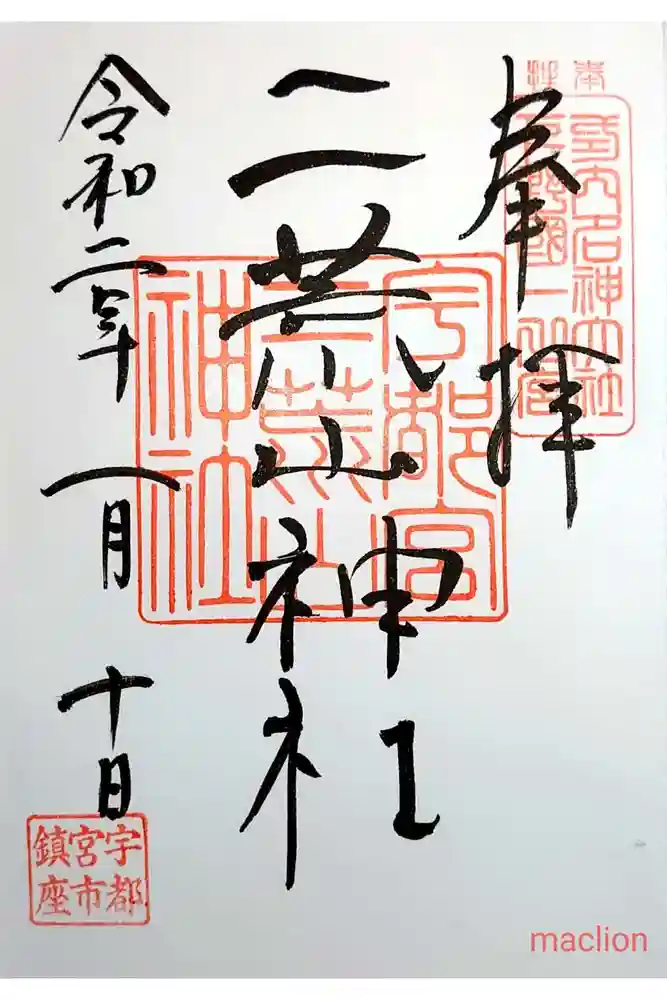 奉拝
二荒山神社
令和二年一月十日
宇都宮
二荒山
神社
延喜式内名神大社
下野國一之宮
宇都
宮市
鎮座
maclion